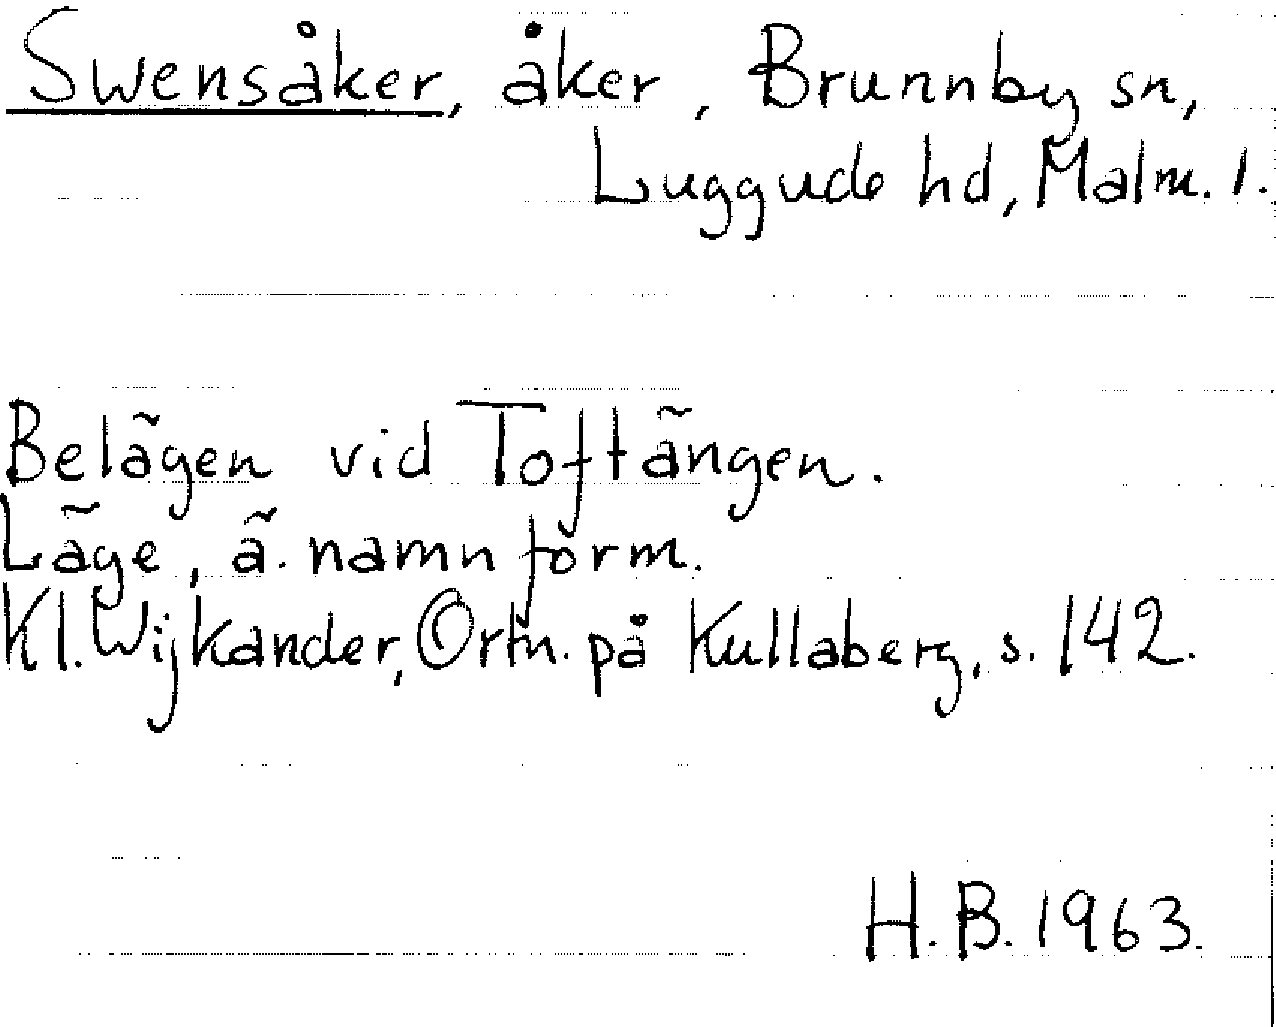 Swensåker, åker, Brunnby sn,
Luggude hd, Malm. l.
Belägen vid Toftängen.
Läge, ä. namnform.
Kl. Wijkander, Ortn. på Kullaberg, s. 142.
H.B. 1963.